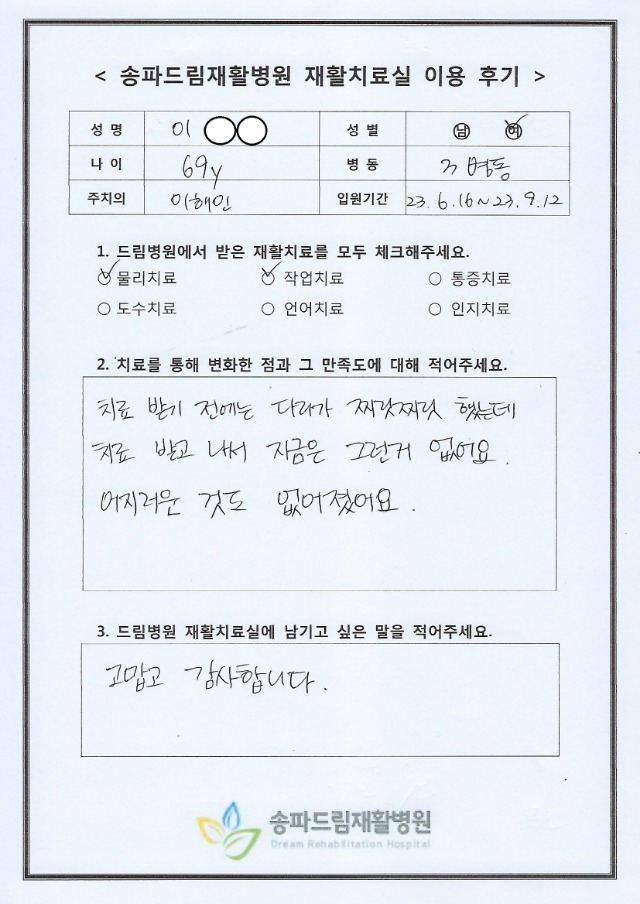 < 송파드림재활병원 재활치료실 이용 후기 >
성 명 이 ○○ 성 별 남 여
나 이 69y 병 동 병동
주치의 이해인 입원기간 23.6.16~23.9.12
1. 드림병원에서 받은 재활치료를 모두 체크해주세요.
○ 물리치료 ○ 작업치료 ○ 통증치료
○ 도수치료 ○ 언어치료 ○ 인지치료
2. 치료를 통해 변화한 점과 그 만족도에 대해 적어주세요.
치료 받기 전에는 다리가 찌릿찌릿 했는데
치료 받고 나서 지금은 그런거 없어요.
어지러운 것도 없어졌어요.
3. 드림병원 재활치료실에 남기고 싶은 말을 적어주세요.
고맙고 감사합니다.
송파드림재활병원
Dream Rehabilitation Hospital